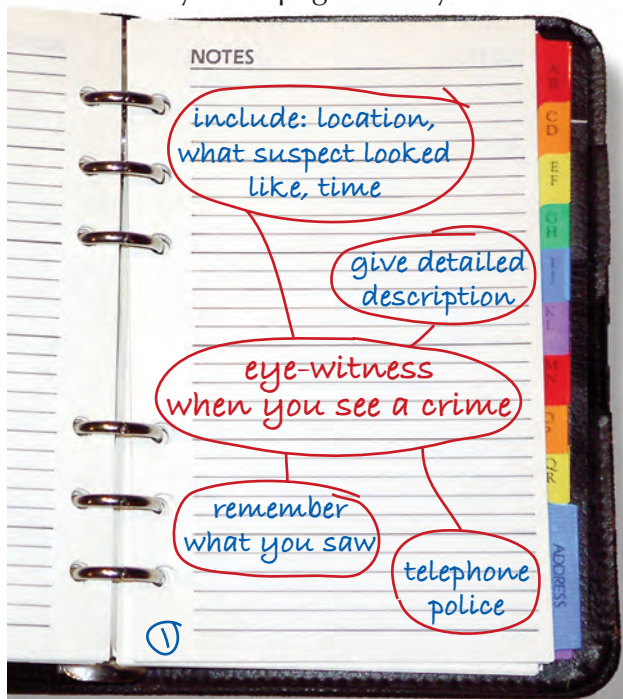 NOTES
include: location,
what suspect looked
like, time
give detailed
description
eye-witness
when you see a crime
remember
what you saw
telephone
police
1
A
B
C
D
E
F
G
H
I
J
K
L
M
N
O
P
Q
R
ADDRESS